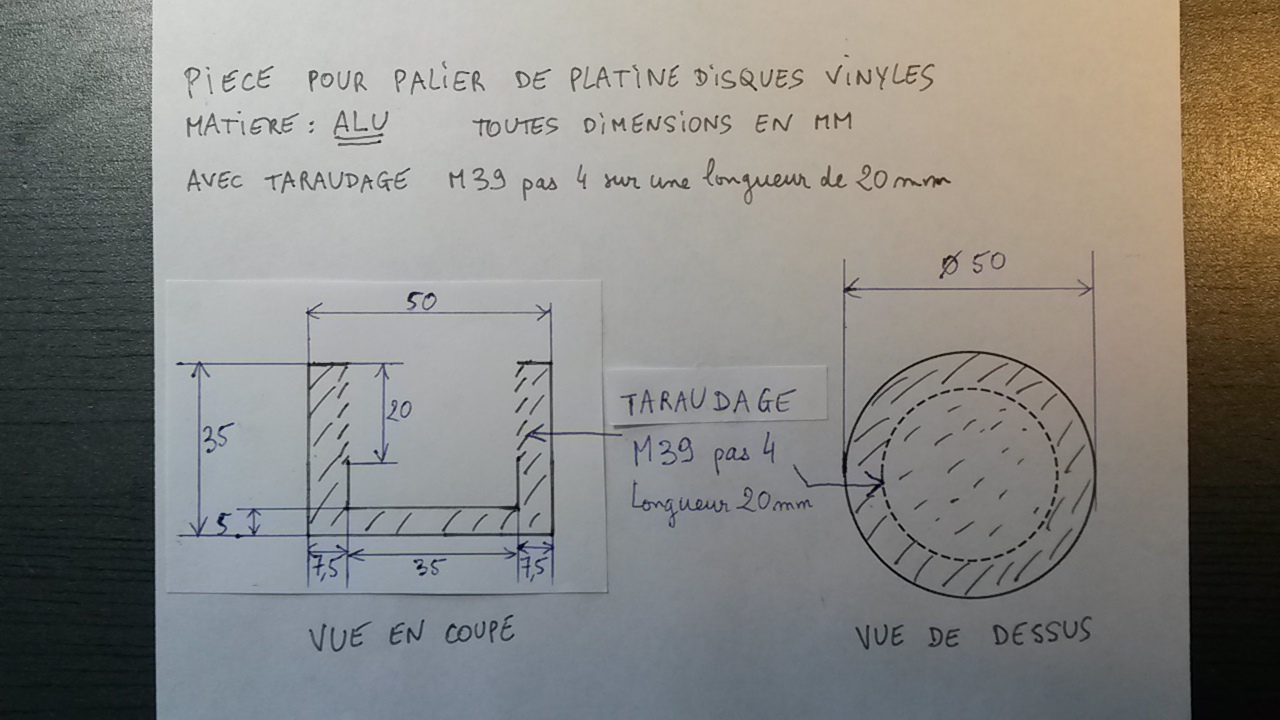 PIECE POUR PALIER DE PLATINE DISQUES VINYLES
MATIERE : ALU TOUTES DIMENSIONS EN MM
AVEC TARAUDAGE M39 pas 4 sur une longueur de 20 mm
50
Ø 50
35
20
5
7,5
35
7,5
TARAUDAGE
M39 pas 4
Longueur 20mm
VUE EN COUPE
VUE DE DESSUS